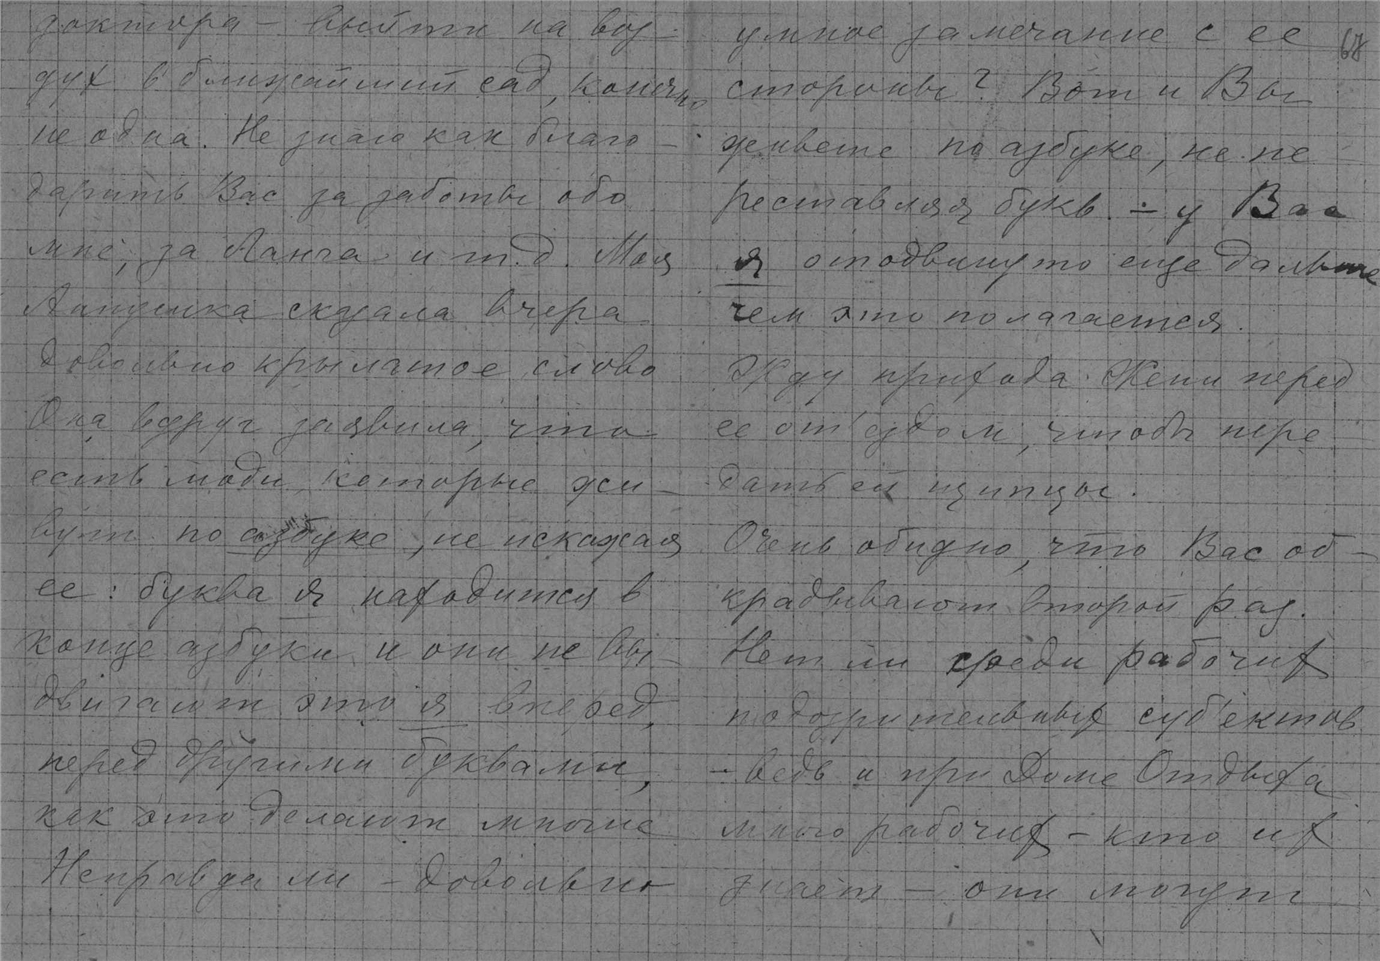 доктора – выйти на воз-
дух в ближайший сад, конечно
не одна. Не знаю как благо-
дарить Вас за заботы обо
мне, за Ланга и т.д. Моя
Аннушка сказала вчера
довольно крылатое слово
Она вдруг заявила, что
есть люди, которые жи-
вут по азбуке, не искажая
ее: буква я находится в
конце азбуки и они не вы-
двигают это я вперед,
перед другими буквами,
как это делают многие
Неправда ли – довольно
68
умное замечание с ее
стороны? Вот и Вы
живете по азбуке, не пе
реставляя букв. – у Вас
я отодвинуто еще дальше
чем это полагается.
Жду прихода Жени перед
ее от'ездом, чтобы пере
дать ей щипцы.
Очень обидно, что Вас об-
крадывают второй раз.
Нет ли среди рабочих
подозрительных суб'ектов
– ведь и при Доме Отдыха
много рабочих – кто их
знает – они могут